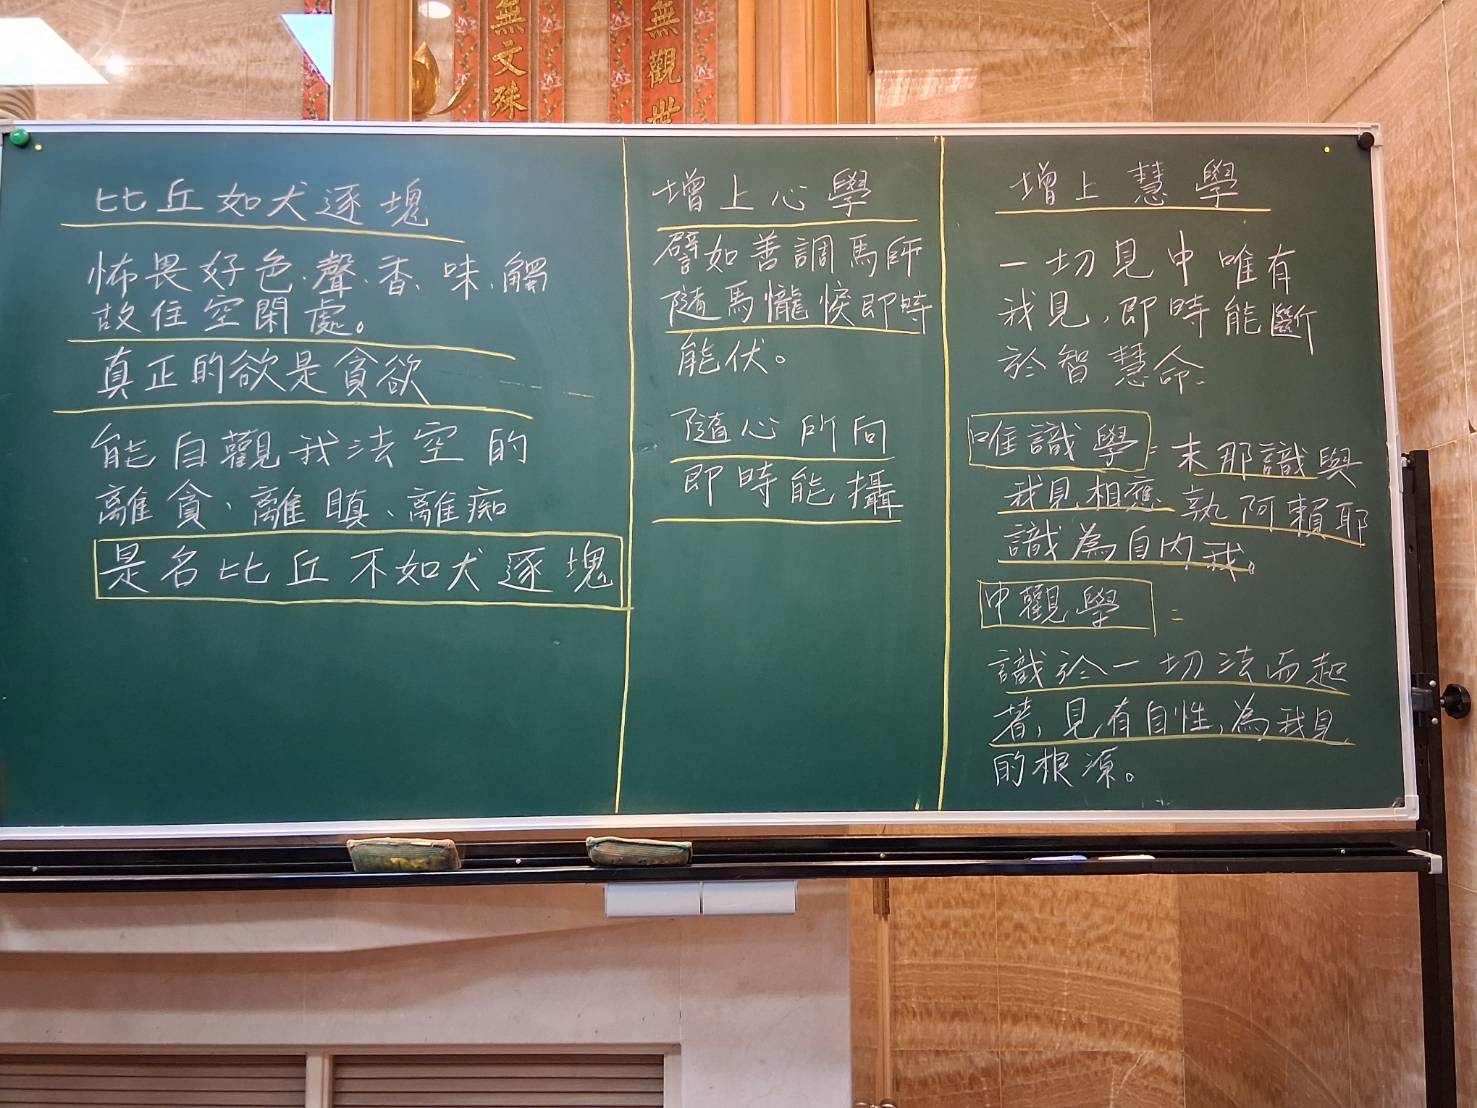 無文殊
無觀世
比丘如犬逐塊
怖畏好色、聲、香、味、觸
故住空閑處。
真正的欲是貪欲
能自觀我法空的
離貪、離瞋、離痴
是名比丘不如犬逐塊
增上心學
譬如善調馬師
隨馬㦨悷即時
能伏。
隨心所向
即時能攝
增上慧學
一切見中唯有
我見,即時能斷
於智慧命.
唯識學=末那識與
我見相應 執阿賴耶
識為自內我。
中觀學=
識於一切法而起
著,見有自性,為我見
的根源。